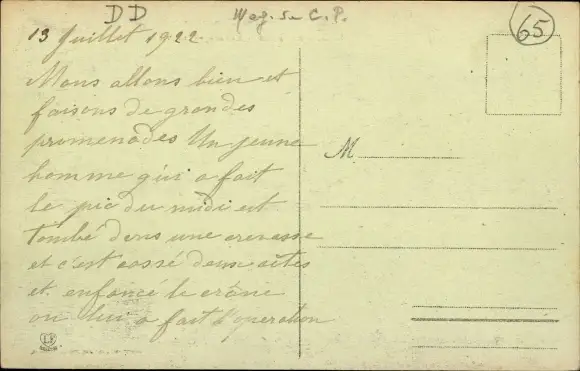 DD Mag. de C. P. 65
13 Juillet 1922
Nous allons bien et
faisons de grandes
promenades Un jeune
homme qui a fait
le pic du midi est
tombé dans une crevasse
et c'est cassé deux côtes
et enfoncé le crâne
on lui a fait l'operation
M